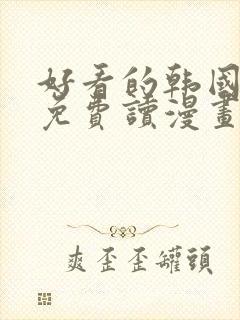 好看的韩國
免費讀漫畫
爽歪歪罐頭